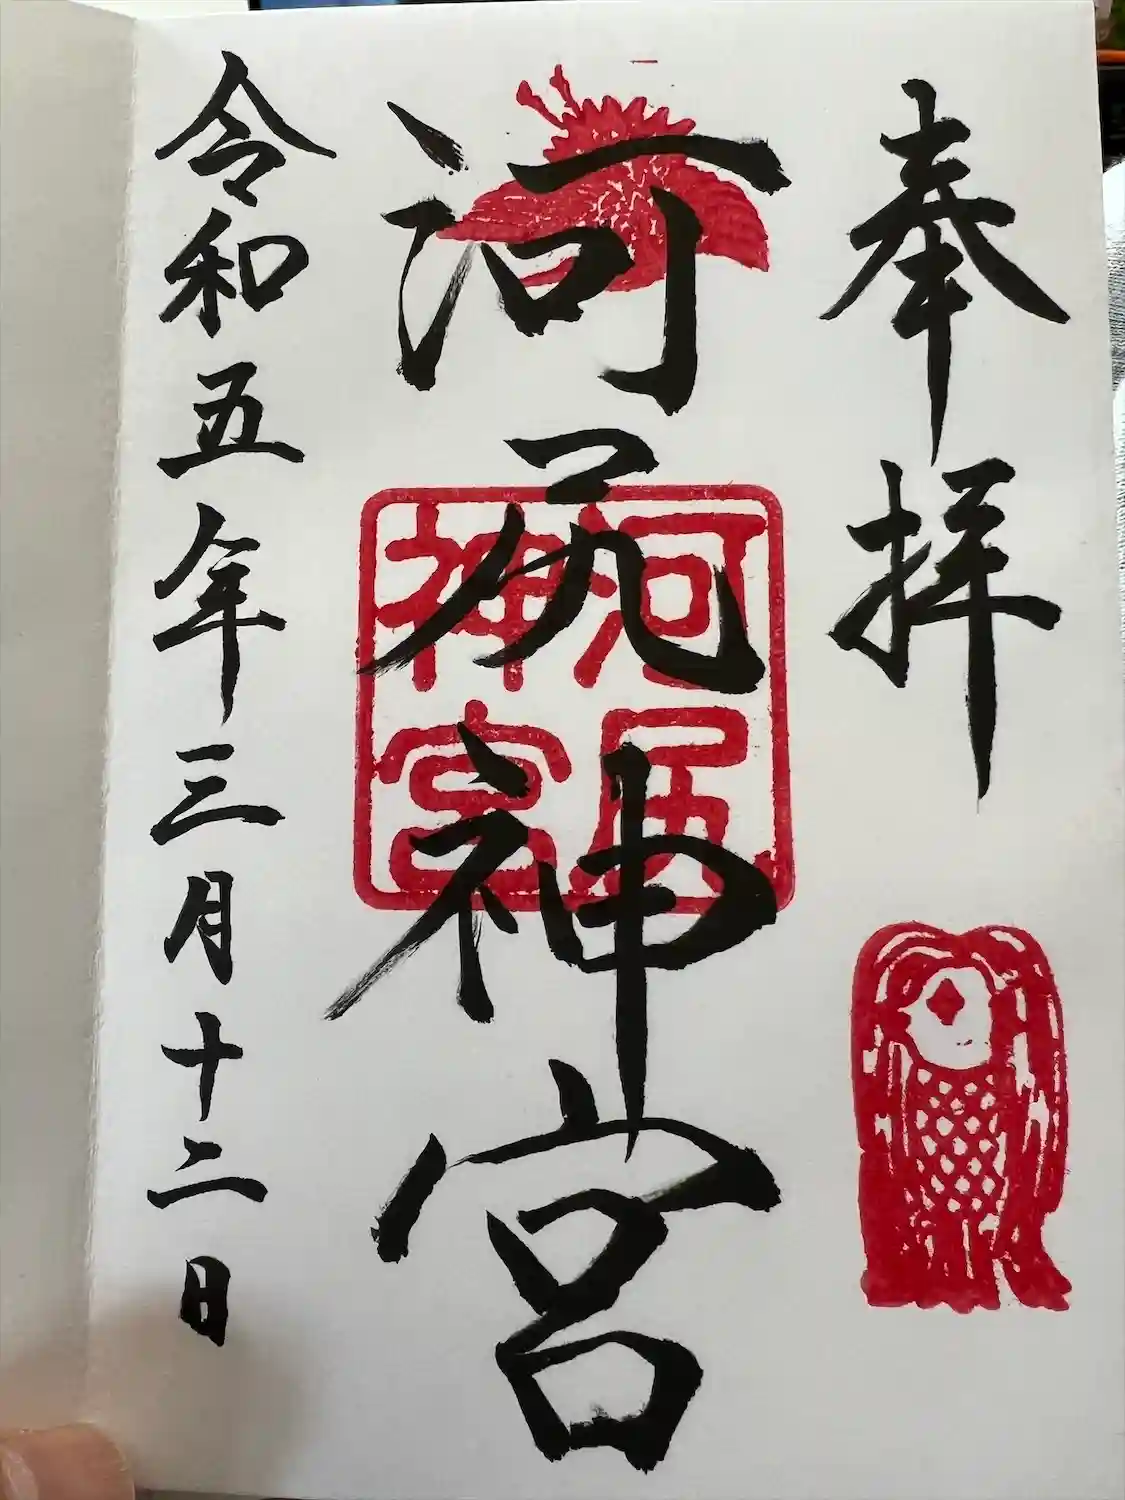 奉拝
河尻神宮
河尻
神宮
令和五年三月十二日